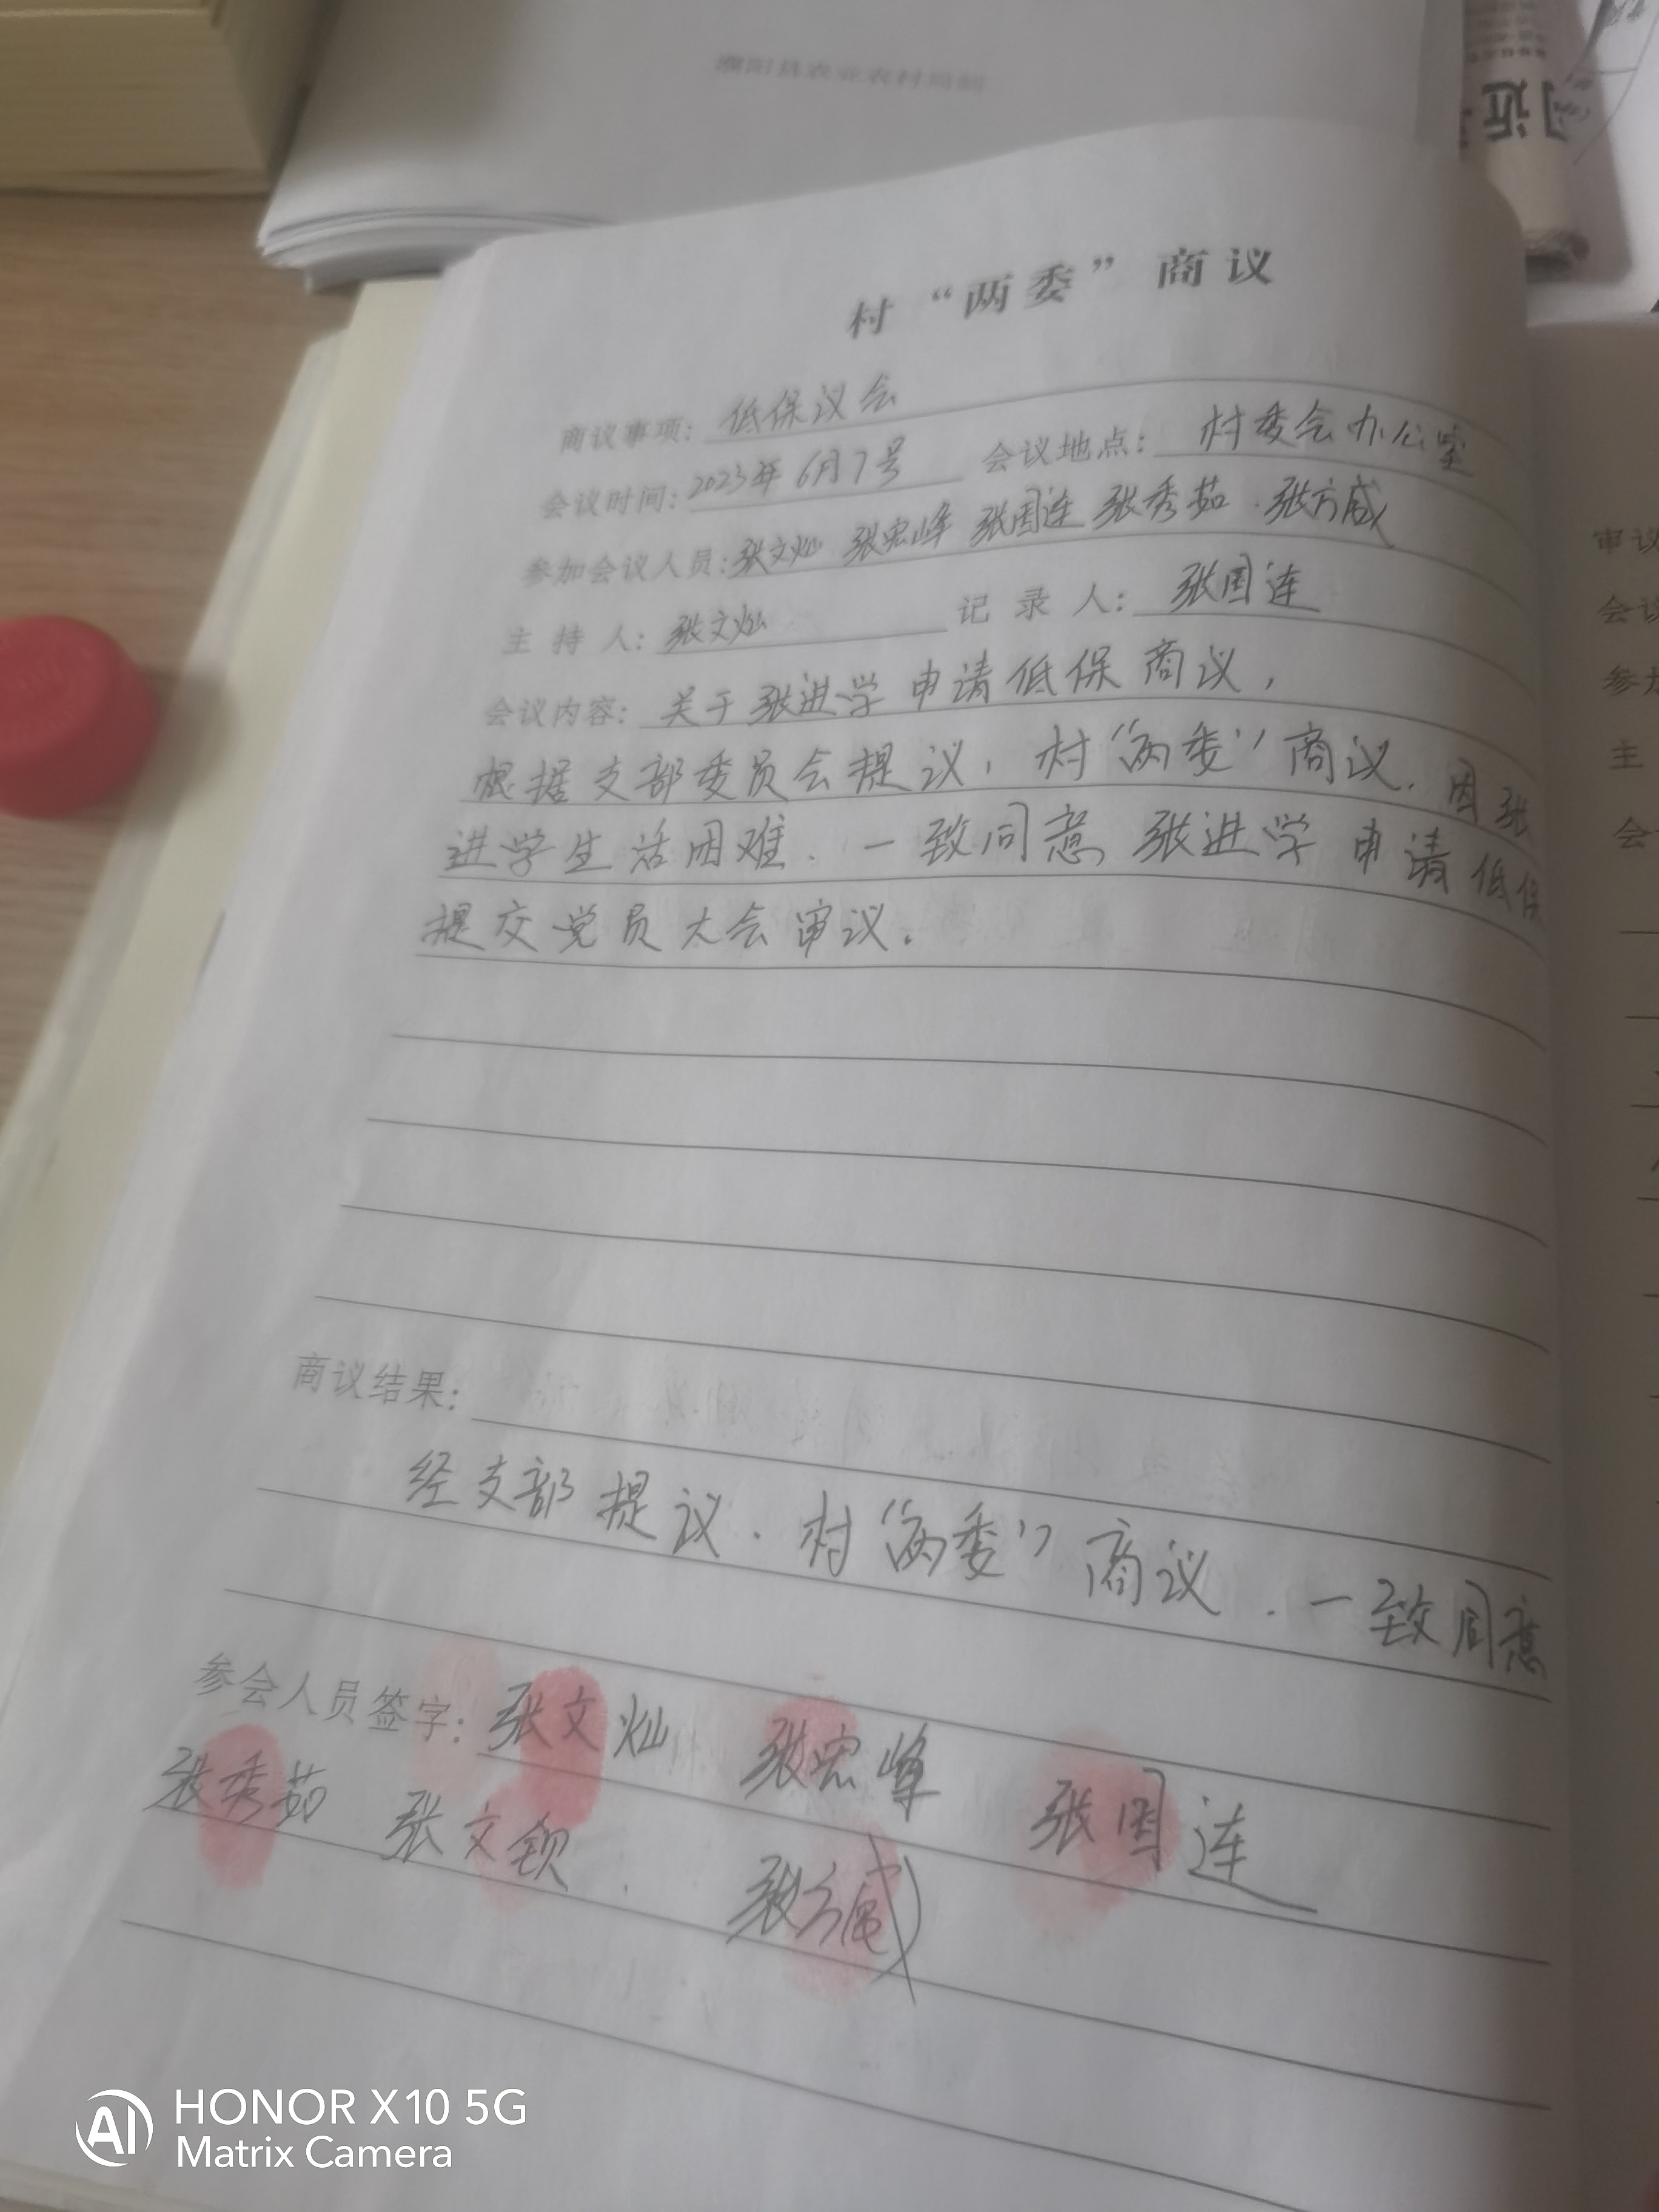 濮阳县农业农村局制
村“两委”商议
商议事项: 低保议会
会议时间: 2023年6月7号 会议地点: 村委会办公室
参加会议人员: 张文灿 张宏峰 张国连 张秀茹 张方威
主持人: 张文灿 记录人: 张国连
会议内容: 关于张进学申请低保商议,
根据支部委员会提议, 村“两委”商议. 因张
进学生活困难. 一致同意 张进学申请低保
提交党员大会审议。
商议结果:
经支部提议. 村“两委”商议. 一致同意
参会人员签字: 张文灿 张宏峰 张国连
张秀茹 张文钦. 张方威
审议
会议
参加
主
会
HONOR X10 5G
Matrix Camera